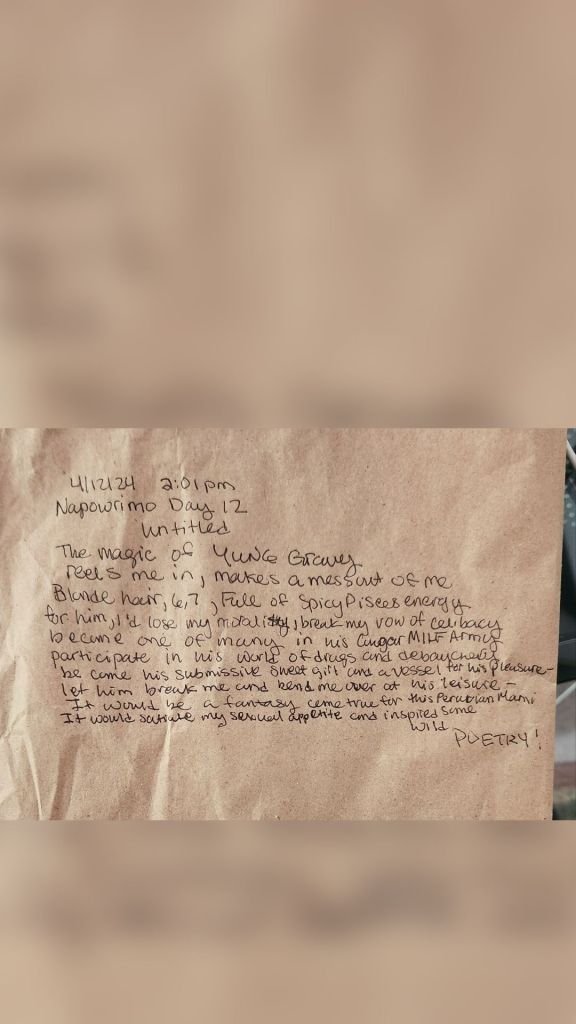 4/12/24 2:01pm
Napowrimo Day 12
Untitled
The magic of YUNG Gravy
reels me in, makes a mess out of me
Blonde hair, 6,7, Full of Spicy Pisces energy
for him, I'd lose my morality, break my vow of celibacy
become one of many in his Cougar MILF Army
participate in his world of drugs and debauchery
be come his submissive sweet girl and a vessel for his pleasure-
let him break me and bend me over at his leisure-
It would be a fantasy come true for this Peruvian Mami
It would satiate my sexual appetite and inspired some
Wild
POETRY!